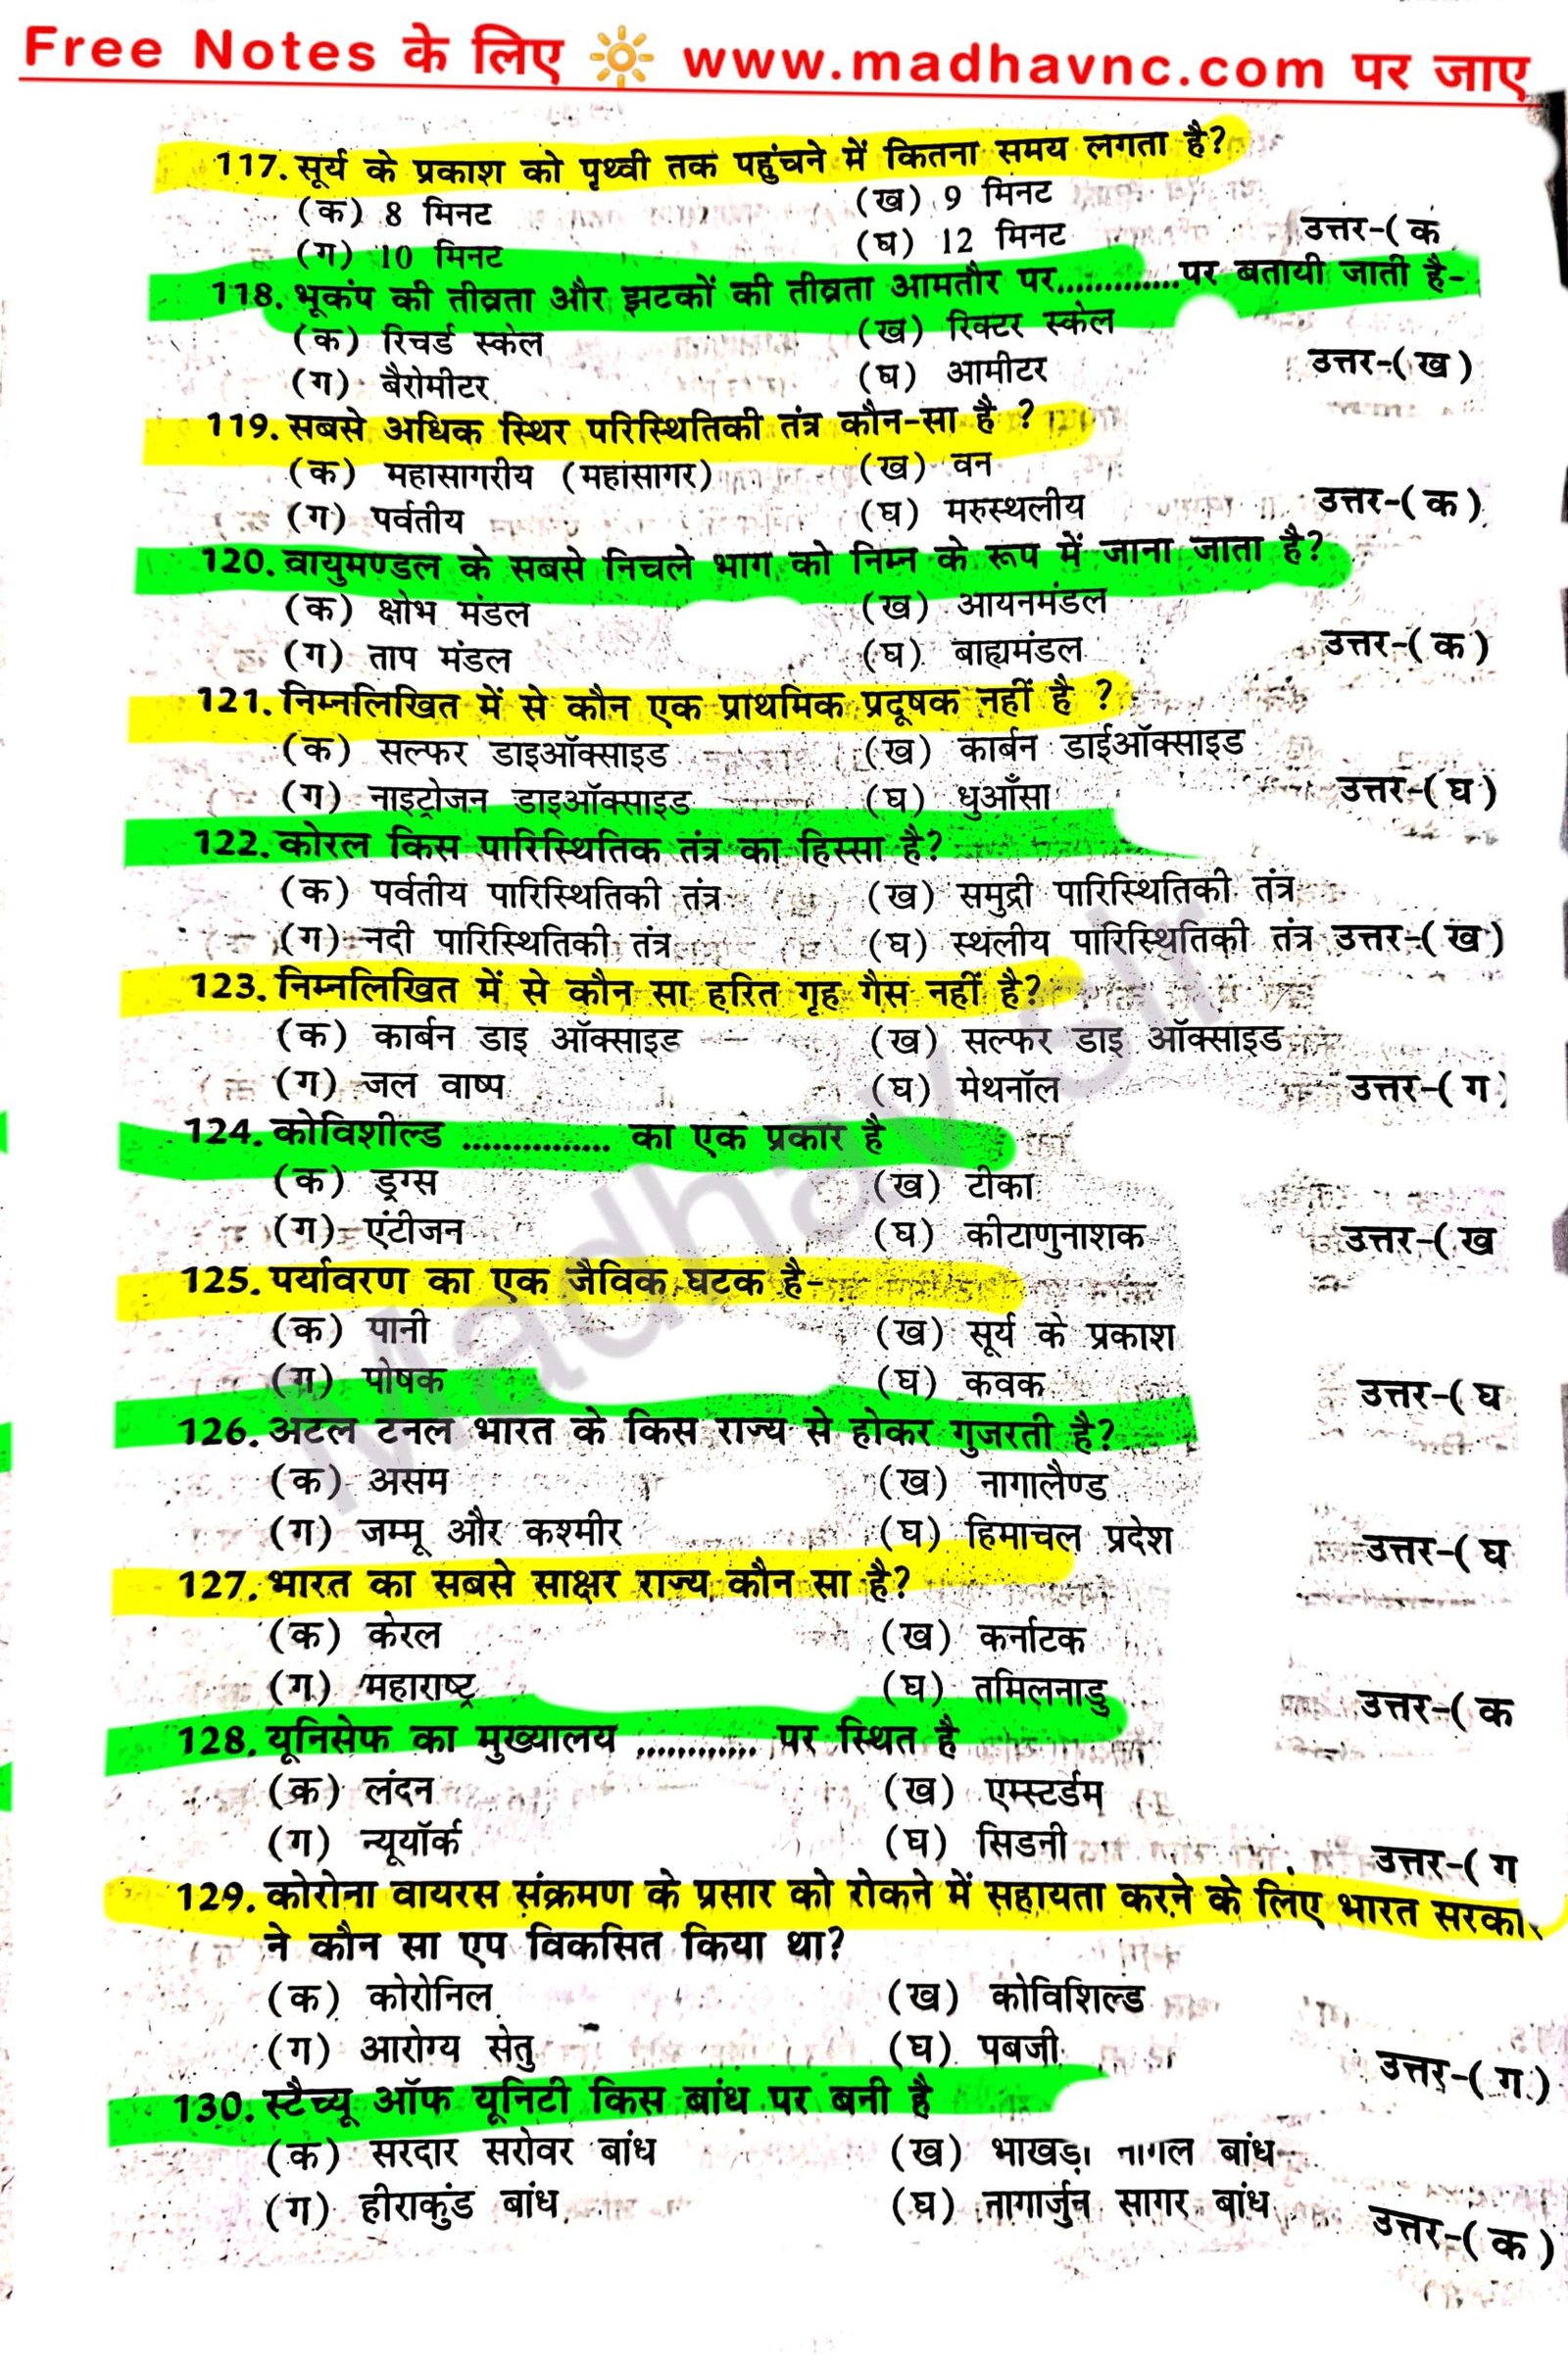 Free Notes के लिए 🔆 www.madhavnc.com पर जाए
117. सूर्य के प्रकाश को पृथ्वी तक पहुंचने में कितना समय लगता है?
(क) 8 मिनट (ख) 9 मिनट
(ग) 10 मिनट (घ) 12 मिनट उत्तर-(क
118. भूकंप की तीव्रता और झटकों की तीव्रता आमतौर पर.............पर बतायी जाती है-
(क) रिचर्ड स्केल (ख) रिक्टर स्केल
(ग) बैरोमीटर (घ) आमीटर उत्तर-(ख)
119. सबसे अधिक स्थिर परिस्थितिकी तंत्र कौन-सा है ?
(क) महासागरीय (महासागर) (ख) वन
(ग) पर्वतीय (घ) मरुस्थलीय उत्तर-(क)
120. वायुमण्डल के सबसे निचले भाग को निम्न के रूप में जाना जाता है?
(क) क्षोभ मंडल (ख) आयनमंडल
(ग) ताप मंडल (घ) बाह्यमंडल उत्तर-(क)
121. निम्नलिखित में से कौन एक प्राथमिक प्रदूषक नहीं है ?
(क) सल्फर डाइऑक्साइड (ख) कार्बन डाईऑक्साइड
(ग) नाइट्रोजन डाइऑक्साइड (घ) धुआँसा उत्तर-(घ)
122. कोरल किस पारिस्थितिक तंत्र का हिस्सा है?
(क) पर्वतीय पारिस्थितिकी तंत्र (ख) समुद्री पारिस्थितिकी तंत्र
(ग) नदी पारिस्थितिकी तंत्र (घ) स्थलीय पारिस्थितिकी तंत्र उत्तर-(ख)
123. निम्नलिखित में से कौन सा हरित गृह गैस नहीं है?
(क) कार्बन डाइ ऑक्साइड (ख) सल्फर डाइ ऑक्साइड
(ग) जल वाष्प (घ) मेथनॉल उत्तर-(ग)
124. कोविशील्ड ............... का एक प्रकार है
(क) ड्रग्स (ख) टीका
(ग) एंटीजन (घ) कीटाणुनाशक उत्तर-(ख
125. पर्यावरण का एक जैविक घटक है-
(क) पानी (ख) सूर्य के प्रकाश
(ग) पोषक (घ) कवक उत्तर-(घ
126. अटल टनल भारत के किस राज्य से होकर गुजरती है?
(क) असम (ख) नागालैण्ड
(ग) जम्मू और कश्मीर (घ) हिमाचल प्रदेश उत्तर-(घ
127. भारत का सबसे साक्षर राज्य कौन सा है?
(क) केरल (ख) कर्नाटक
(ग) महाराष्ट्र (घ) तमिलनाडु उत्तर-(क
128. यूनिसेफ का मुख्यालय ............ पर स्थित है
(क) लंदन (ख) एम्स्टर्डम
(ग) न्यूयॉर्क (घ) सिडनी उत्तर-(ग
129. कोरोना वायरस संक्रमण के प्रसार को रोकने में सहायता करने के लिए भारत सरका
ने कौन सा एप विकसित किया था?
(क) कोरोनिल (ख) कोविशिल्ड
(ग) आरोग्य सेतु (घ) पबजी उत्तर-(ग)
130. स्टैच्यू ऑफ यूनिटी किस बांध पर बनी है
(क) सरदार सरोवर बांध (ख) भाखड़ा नागल बांध
(ग) हीराकुंड बांध (घ) नागार्जुन सागर बांध उत्तर-(क)
Madhav sir